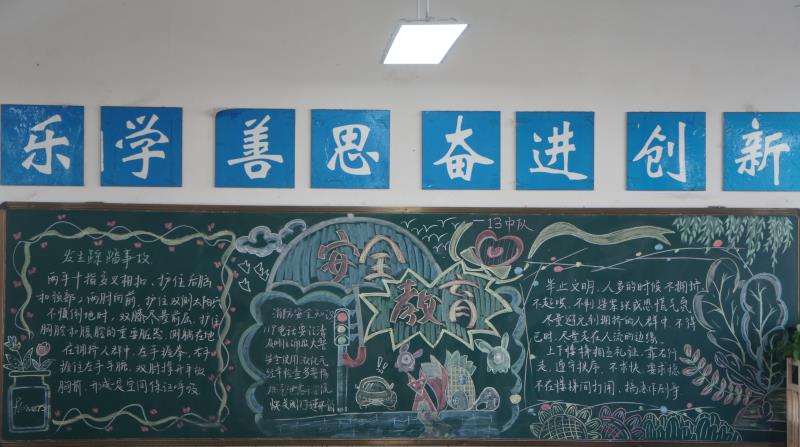 乐学 善思 奋进 创新
13中队
安全
教育
发生踩踏事故
两手十指交叉相扣、护住后脑
和颈部；两肘向前，护住双侧太阳穴
不慎倒地时，双膝尽量前屈，护住
胸腔和腹腔的重要脏器，侧躺在地
在拥挤人群中，左手握拳，右手
握住左手手腕，双肘撑开平放
胸前，形成
空间保证呼吸
消防安全知识
119电话要记清
安全使用
举止文明，人多的时候不拥挤
不起哄、不制造紧张或恐慌气氛
尽量避免到拥挤的人群中，不得
已时，尽量走在人流的边缘
上下楼梯相互礼让，靠右行
走，遵守秩序，不
不在楼梯间打闹，搞恶作剧等